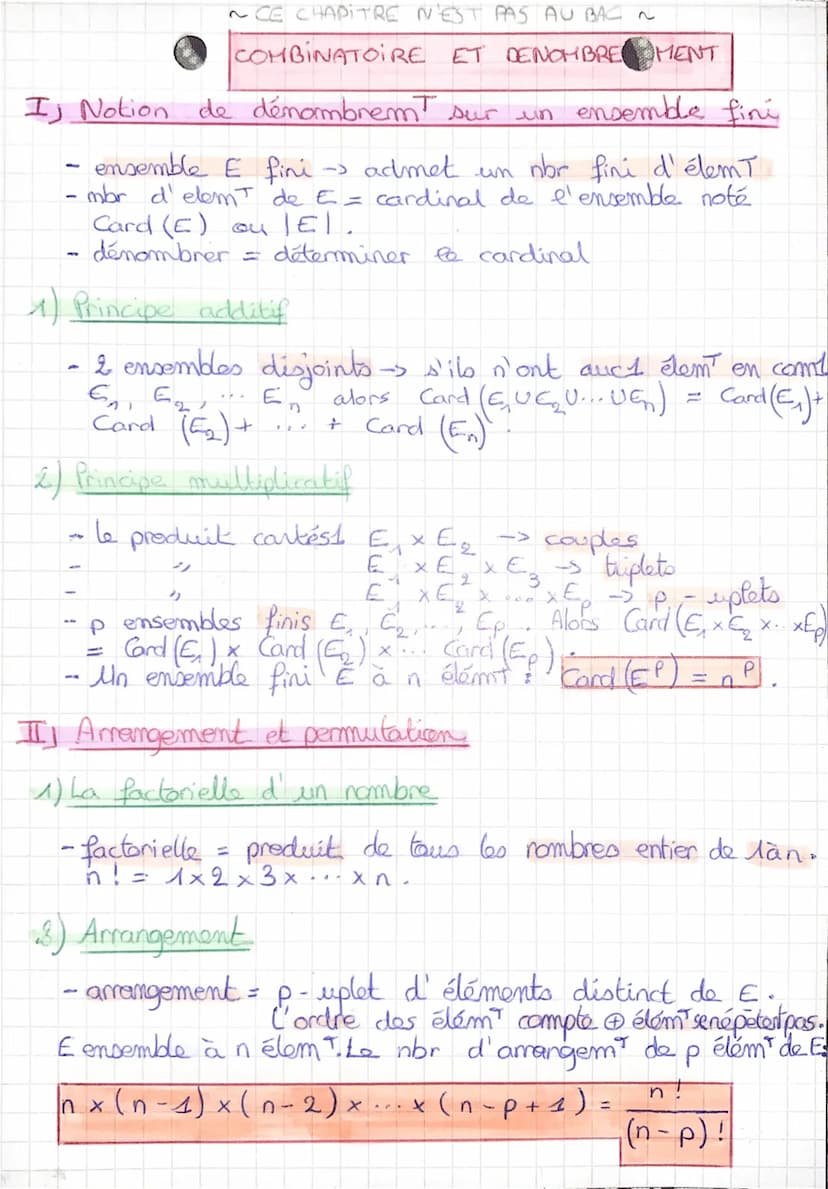 ~ CE CHAPITRE N'EST PAS AU BAC ~
COMBINATOIRE ET DENOMBREMENT
I) Notion de dénombremT sur un ensemble fini
- ensemble E fini -> admet un nbr fini d'élemT
- nbr d'elemT de E = cardinal de l'ensemble noté
Card (E) ou |E|.
- dénombrer = déterminer le cardinal
1) Principe additif
- 2 ensembles disjoints -> s'ils n'ont auc1 élemT en com1
E₁, E₂, ... Eₙ alors Card (E₁∪E₂∪...∪Eₙ) = Card(E₁)+
Card (E₂)+ ... + Card (Eₙ).
2) Principe multiplicatif
- le produit cartés1 E₁ × E₂ -> couples
- " E₁ × E₂ × E₃ -> triplets
- " E₁ × E₂ × ... × Eₚ -> p-uplets
- p ensembles finis E₁, E₂, ..., Eₚ. Alors Card (E₁ × E₂ × .. × Eₚ)
= Card (E₁) × Card (E₂) × ... Card (Eₚ).
- Un ensemble fini E à n élémT : Card (Eᵖ) = nᵖ.
II) Arrangement et permutation
1) La factorielle d'un nombre
- factorielle = produit de tous les nombres entier de 1 à n.
n! = 1 × 2 × 3 × ... × n.
2) Arrangement
- arrangement = p-uplet d'éléments distinct de E.
L'ordre des élémT compte ⊕ élémT se répètent pas.
E ensemble à n élemT. Le nbr d'arrangemT de p élémT de E:
n × (n-1) × (n-2) × ... × (n-p+1) = n! / (n-p)!